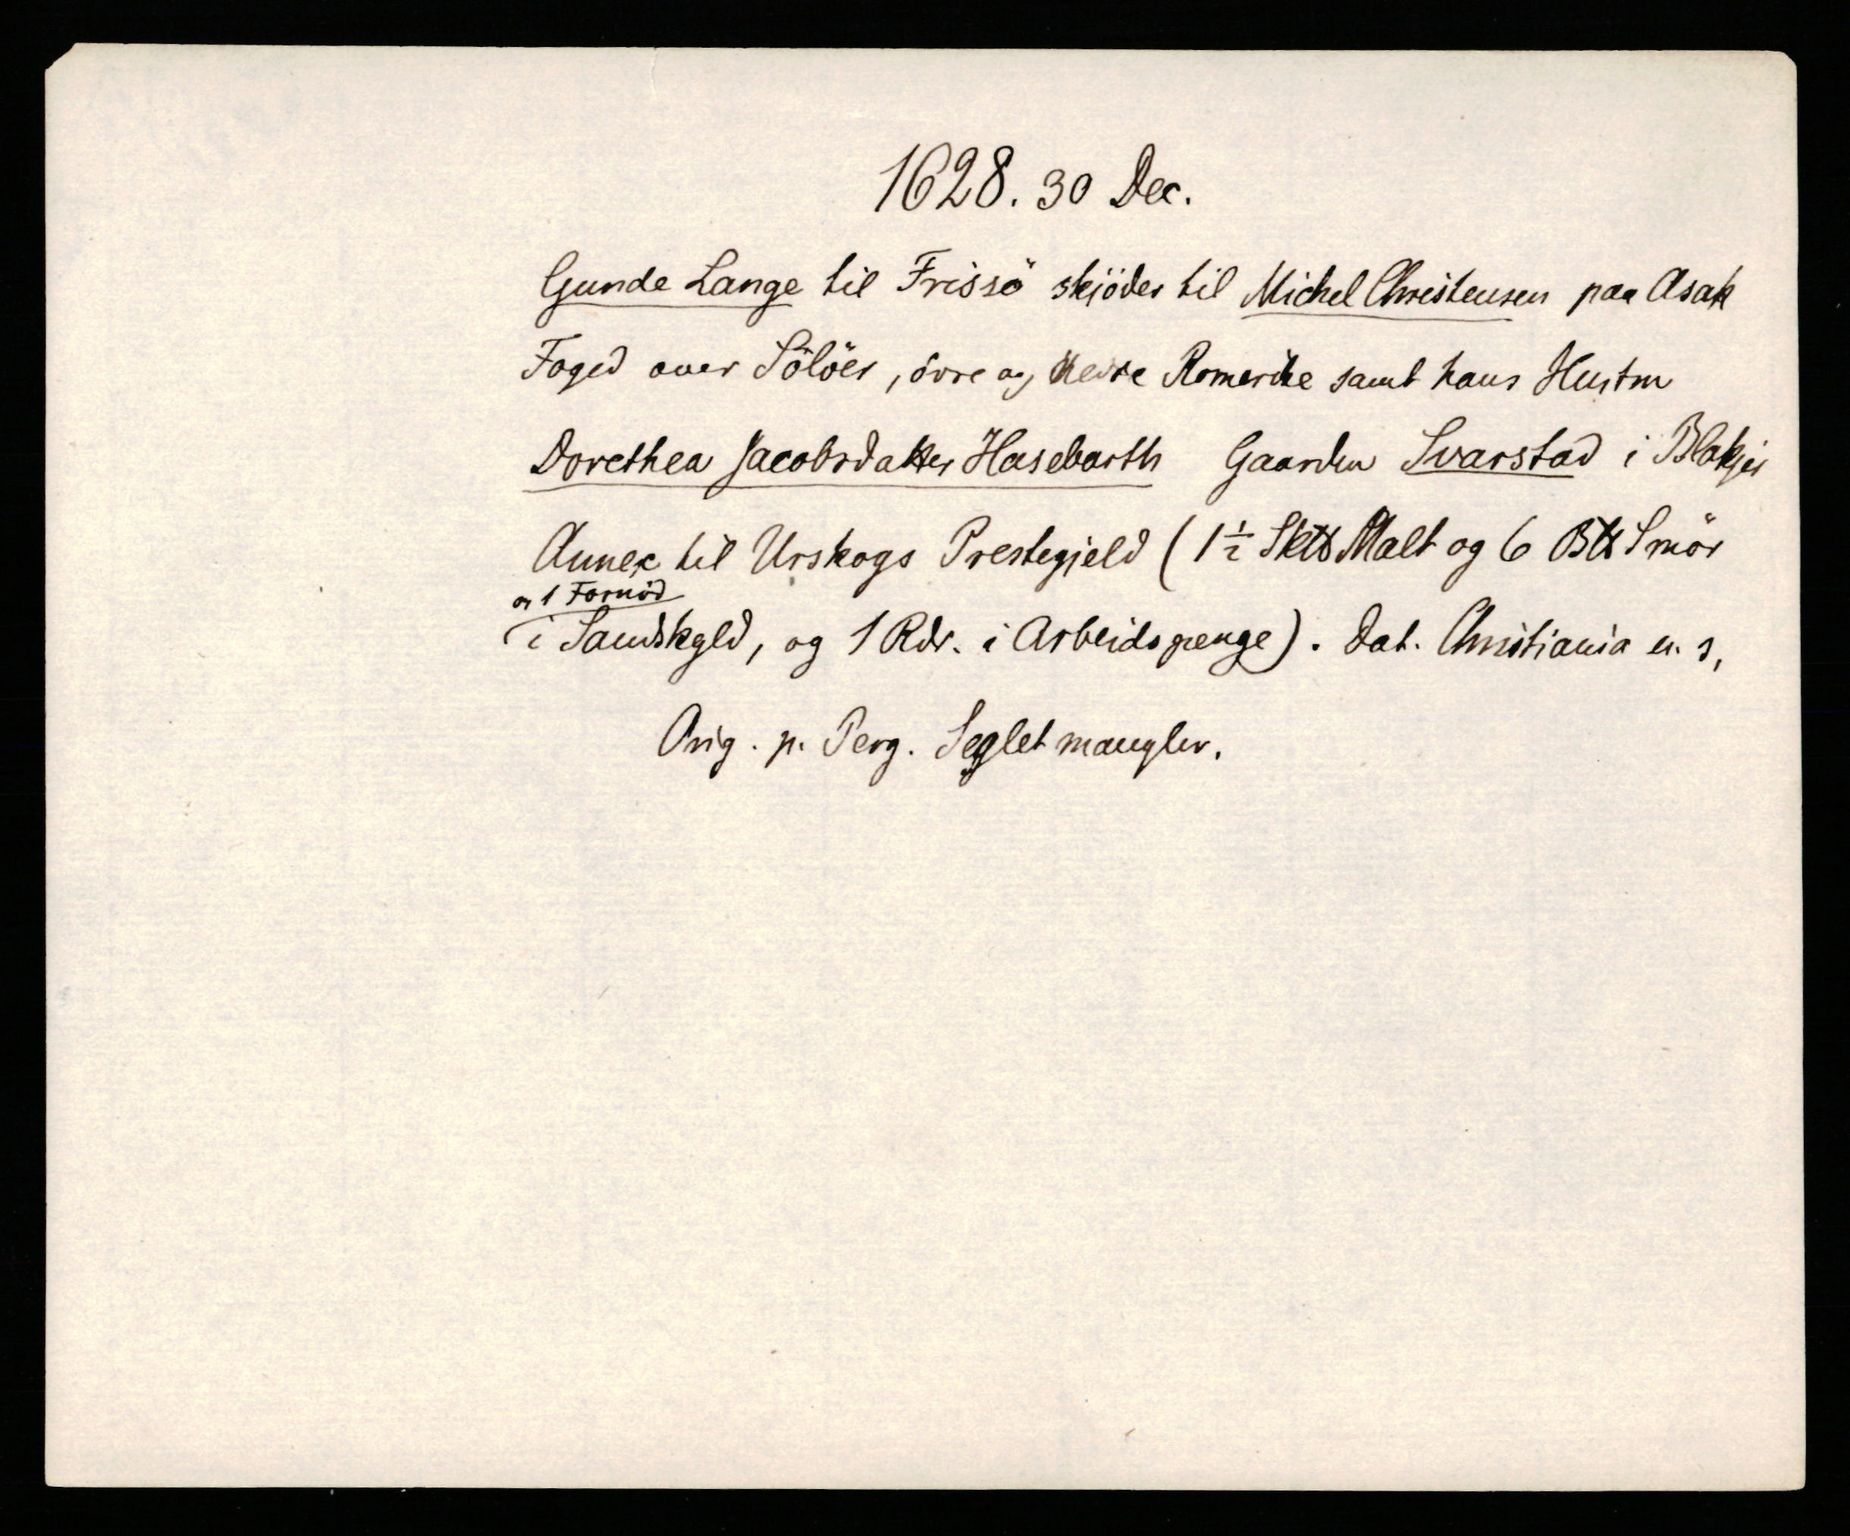 1628. 30 Dec.
Gunde Lange til Frissö skjöder til Michel Christensen paa Asak
Foged over Sölöer, övre og nedre Romerike samt hans Hustru
Dorethea Jacobsdatter Hasebarth Gaarden Svarstad i Blakjer
Annex til Urskogs Prestegjeld (1½ Sk℔ Malt og 6 B℔ Smör
og 1 Fornöd
i Landskyld, og 1 Rdr. i Arbeidspenge). Dat. Christiania u. s,
Orig. p. Perg. Seglet mangler.